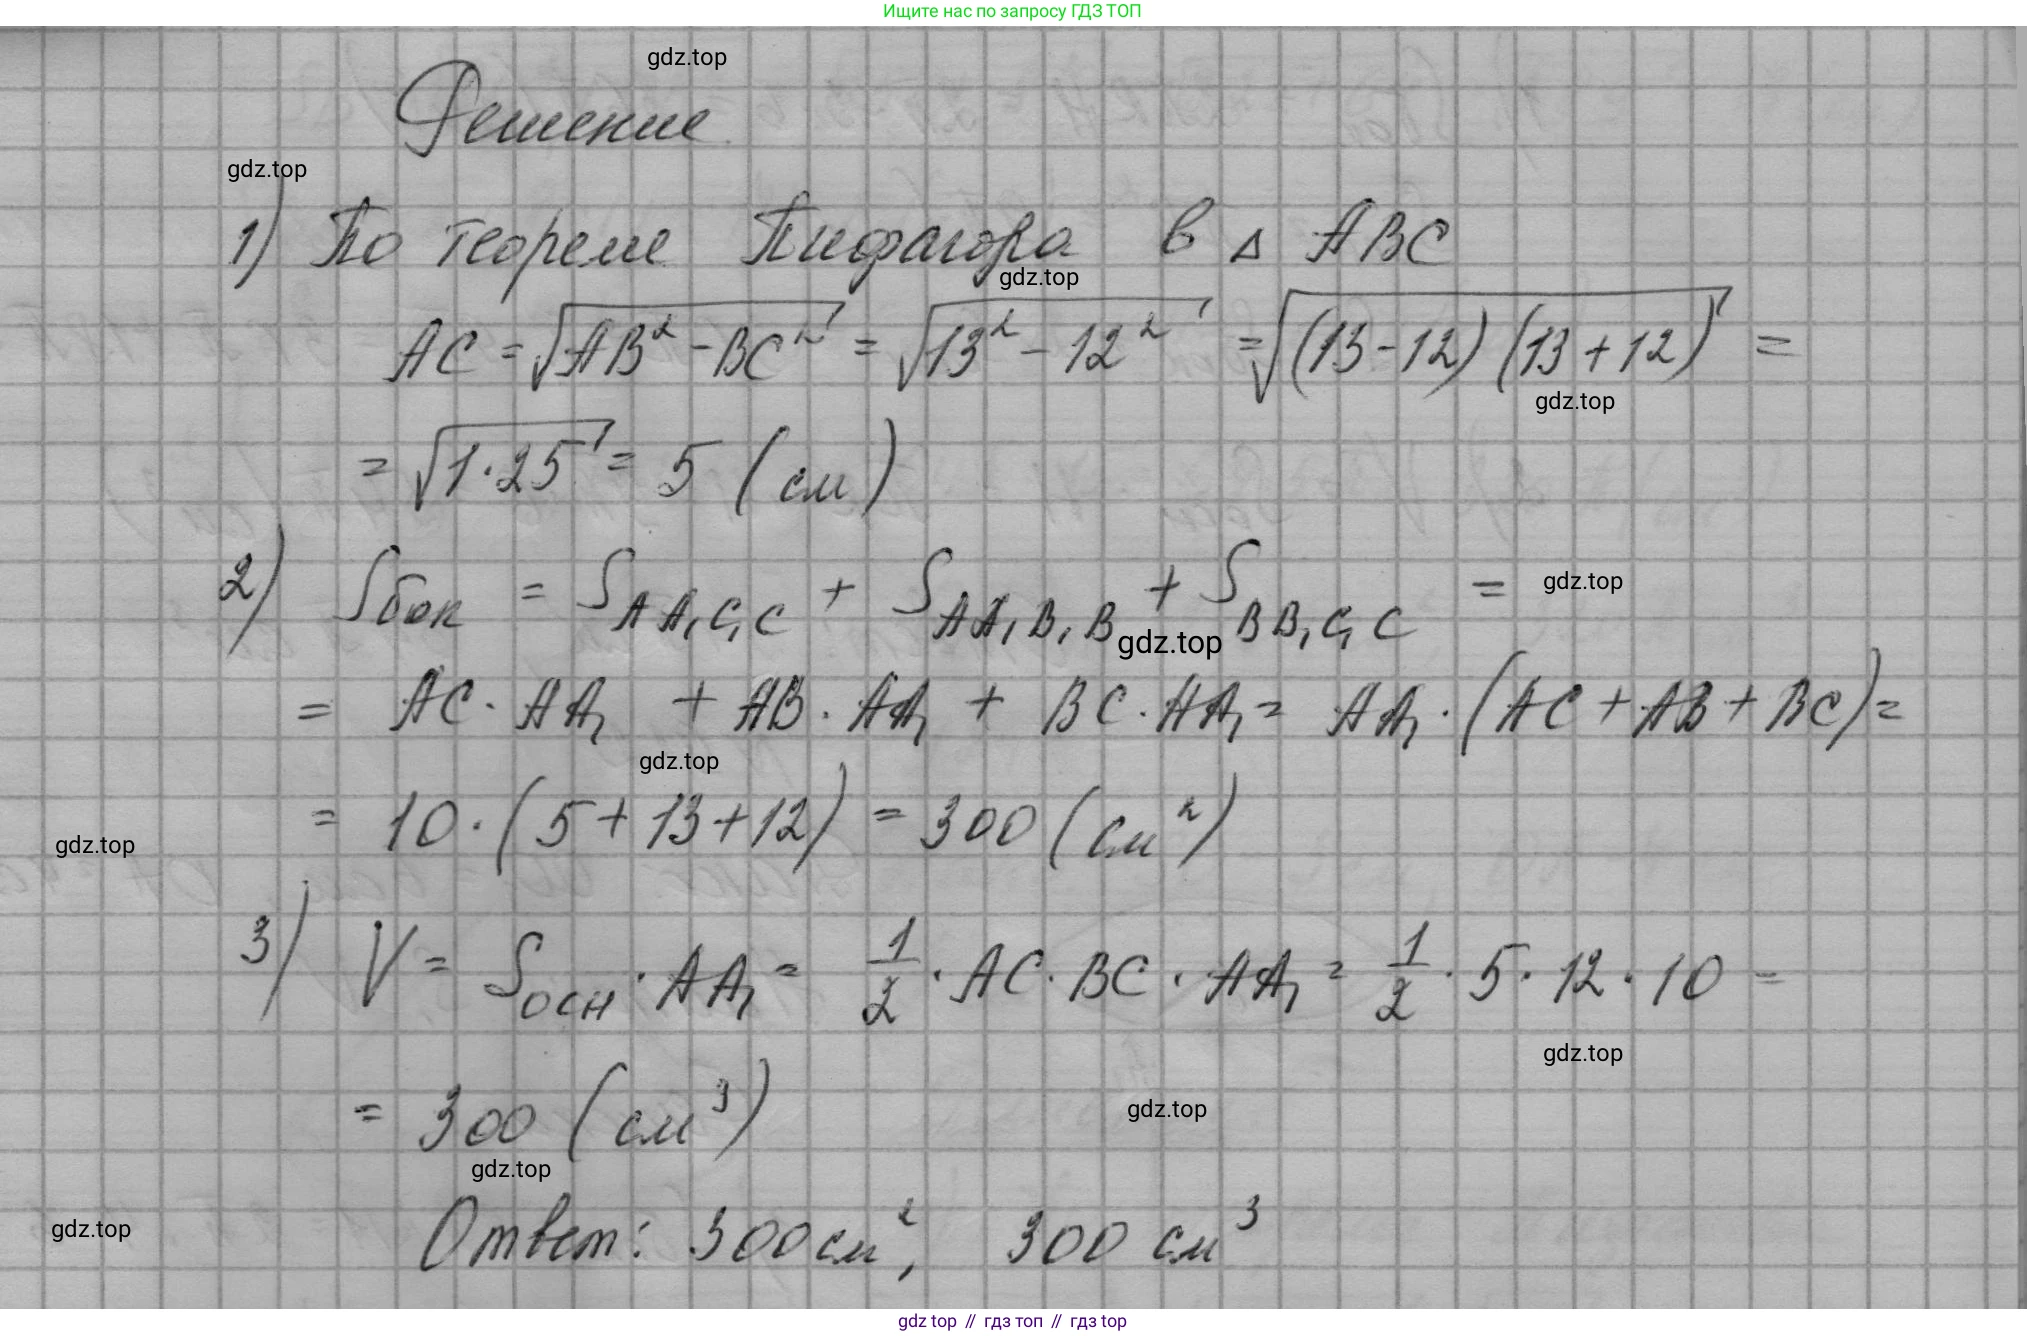 Ищите нас по запросу ГДЗ ТОП
gdz.top
Решение
gdz.top
1) По теореме Пифагора в Δ ABC
gdz.top
AC = √(AB² - BC²) = √(13² - 12²) = √((13-12)(13+12)) =
gdz.top
= √(1·25) = 5 (см)
2) Sбок = S_AA₁C₁C + S_AA₁B₁B + S_BB₁C₁C =
gdz.top
gdz.top
= AC · AA₁ + AB · AA₁ + BC · AA₁ = AA₁ · (AC + AB + BC) =
gdz.top
= 10 · (5 + 13 + 12) = 300 (см²)
gdz.top
3) V = Sосн · AA₁ = 1/2 · AC · BC · AA₁ = 1/2 · 5 · 12 · 10 =
gdz.top
= 300 (см³)
gdz.top
gdz.top
Ответ: 300 см², 300 см³
gdz.top
gdz top // гдз топ // гдз top